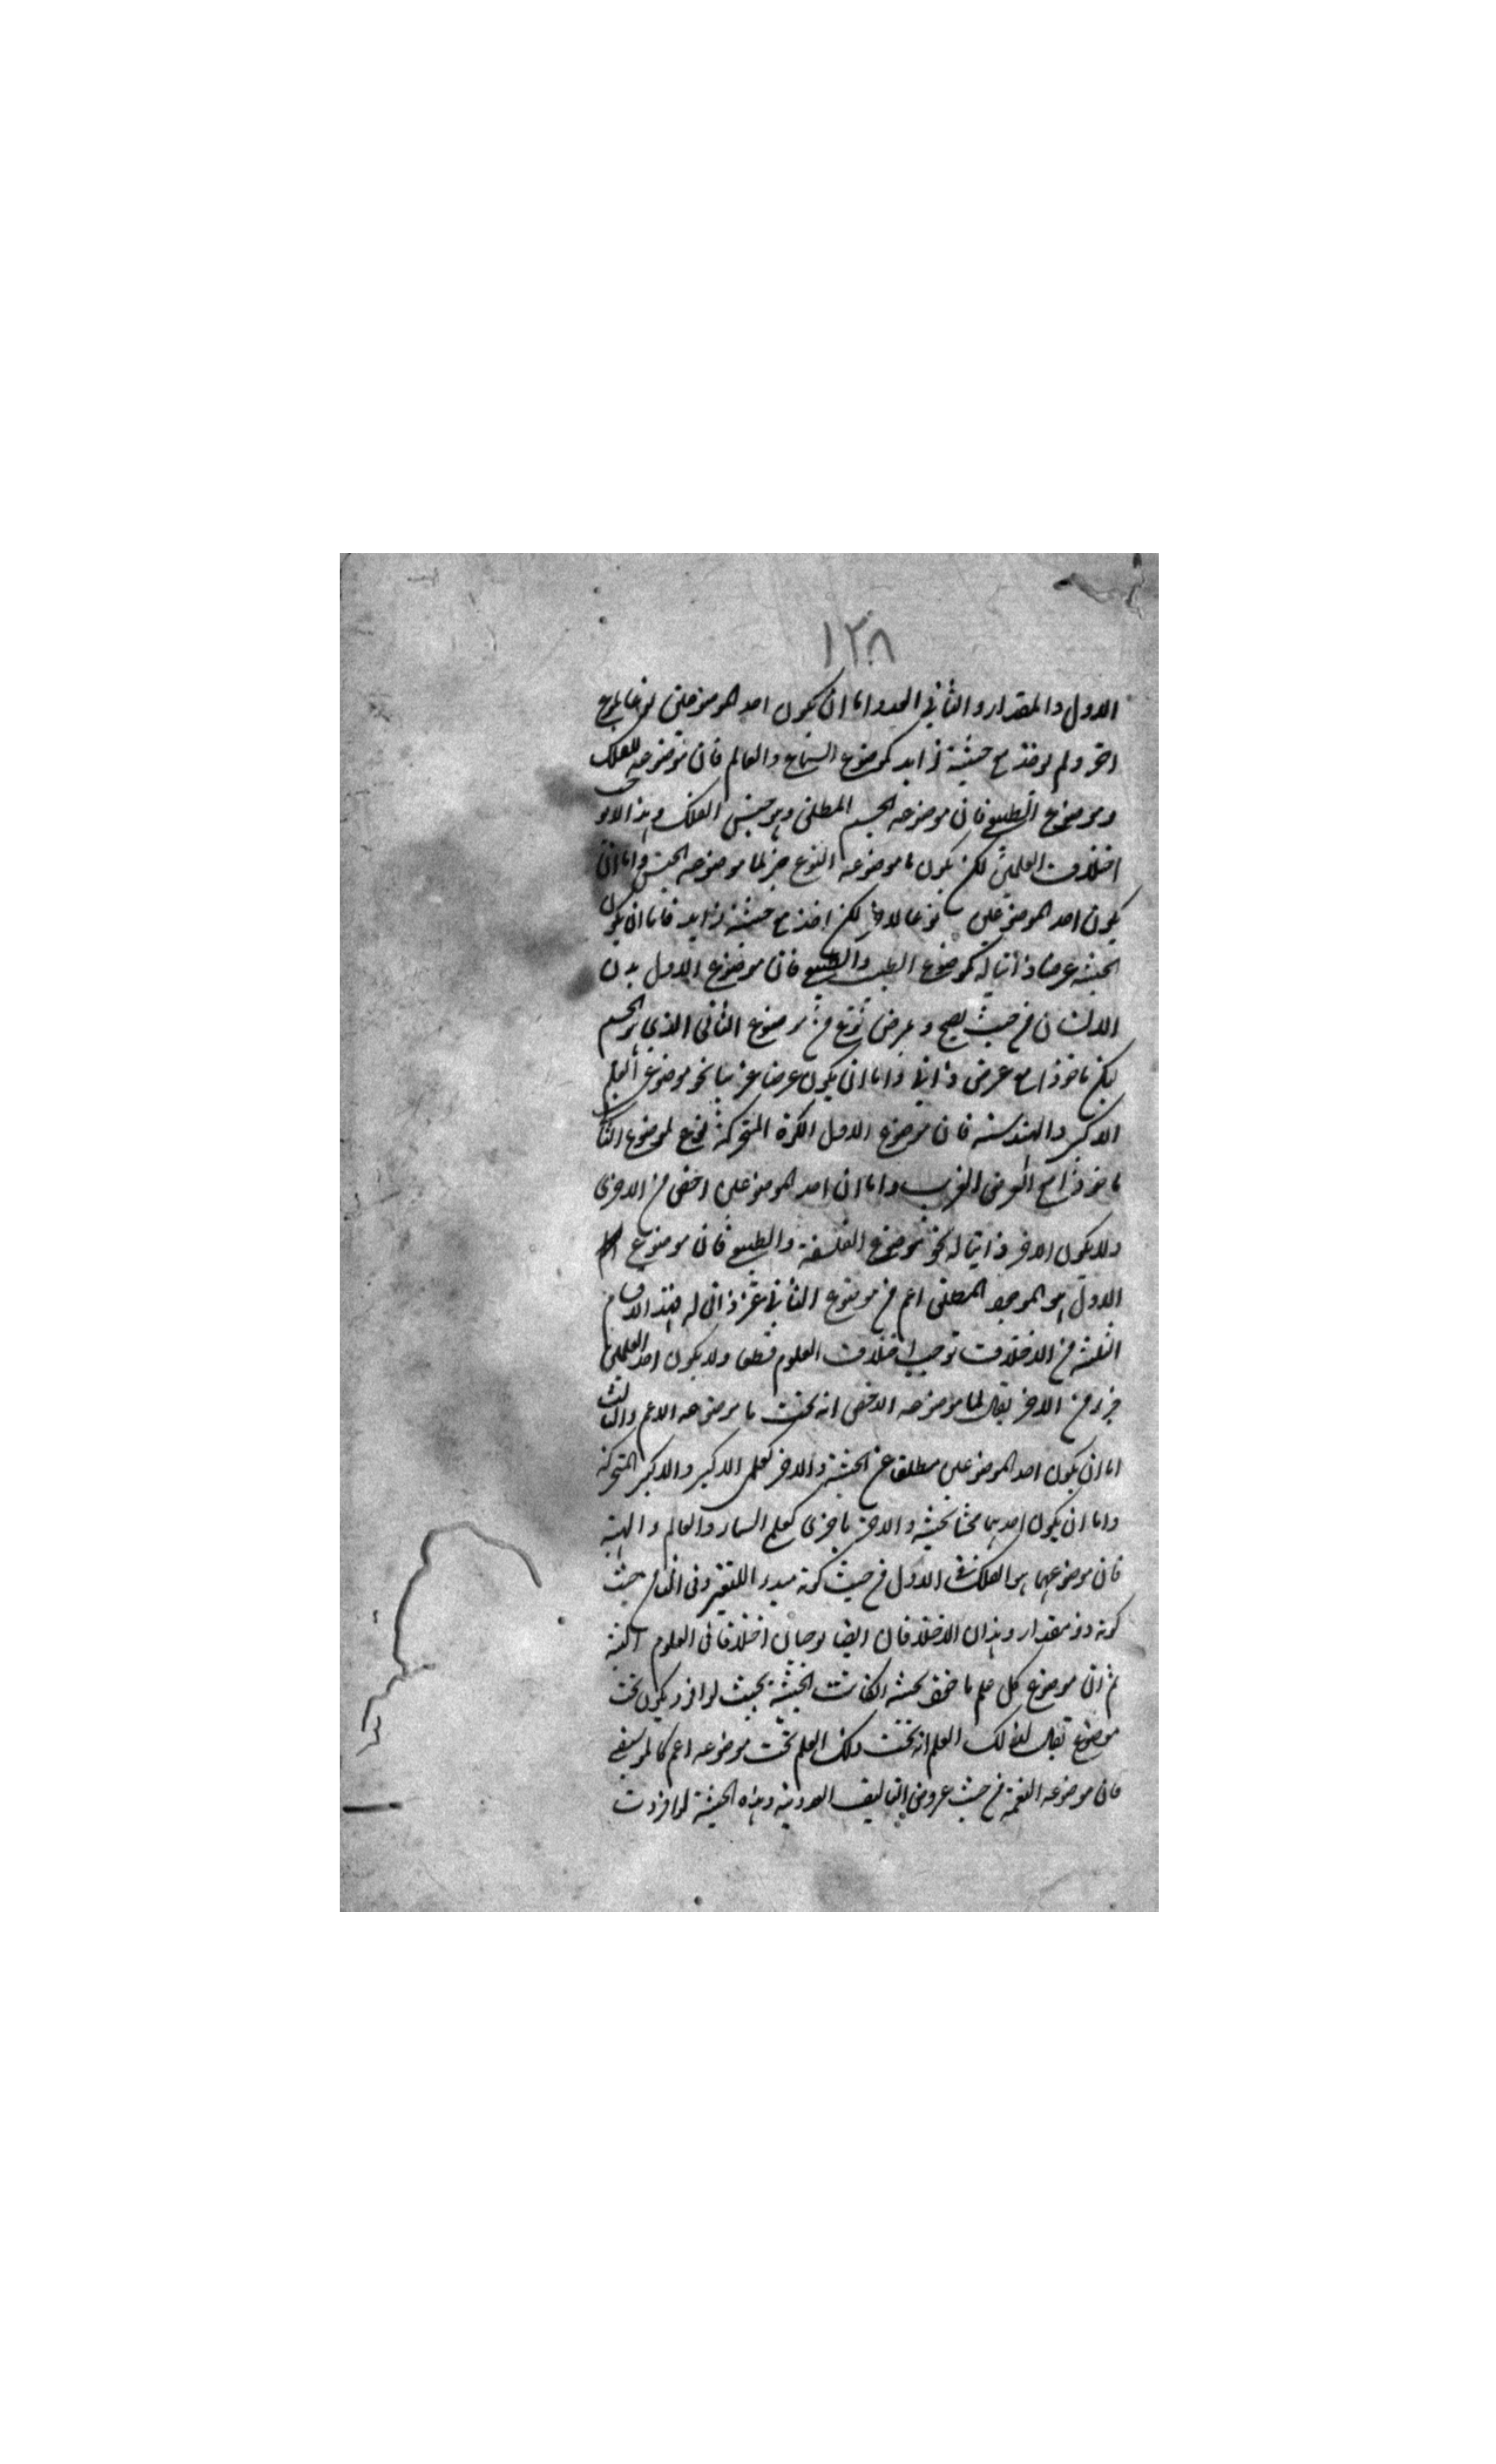 ١٢٨
الاول والمقدار والثاني العدد واما ان يكون احد الموضوعين نوعا لموضوع
اخر ولم يوخذ مع حيثية زايد كموضوع السماع والعالم فان موضوعه الفلك
وموضوع الطبيعي فان موضوعه الجسم المطلق وهو جنس الفلك وهذا الامر
اختلاف العلمين لكن يكون ما موضوعه النوع جزء لما موضوعه الجنس واما ان
يكون احد الموضوعين نوعا للاخر لكن اخذ مع حيثية زايد فاما ان يكون
الحيثية عرضا ذاتيا له كموضوع الطب والطبيعي فان موضوع الاول بدن
الانسان من حيث يصح و يمرض نوع من موضوع الثاني الذي هو الجسم
لكن ماخوذا مع عرض ذاتي واما ان يكون عرضا غريبا نحو موضوع العلم
الاكر والهندسة فان موضوع الاول الكرة المتحركة نوع لموضوع الثاني
ماخوذا مع العرض الغريب واما ان احد الموضوعين اخص من الاخرى
ولا يكون الاخر ذاتيا له نحو موضوع الفلسفة والطبيعي فان موضوع
الاول هو الموجود المطلق اعم من موضوع الثاني غير ذاتي له فهذه الاقسام
الثلثة من الاختلاف توجب اختلاف العلوم قطعا ولا يكون احد العلمين
جزء من الاخر يقال لما موضوعه الاخص انه تحت ما موضوعه الاعم والثالث
اما ان يكون احد الموضوعين مطلقا عن الحيثية والاخر كعلمي الاكر والاكر المتحركة
واما ان يكون احدهما محيثا بحيثية والاخر باخرى كعلم السماء والعالم والهيئة
فان موضوعهما هو الفلك ففي الاول من حيث كونه مبدء للتغير وفي الثاني من حيث
كونه ذو مقدار وهذان الاختلافان ايضا يوجبان اختلافا في العلوم البتة
ثم ان موضوع كل علم ماخوذ بحيثية ان كانت الحيثية بحيث لو افرد يكون تحت
موضوع يقال لذلك العلم انه تحت ذلك العلم تحت موضوعه اعم كالموسيقي
فان موضوعه النغمة من حيث عروض التاليف العددية وهذه الحيثية لو افردت